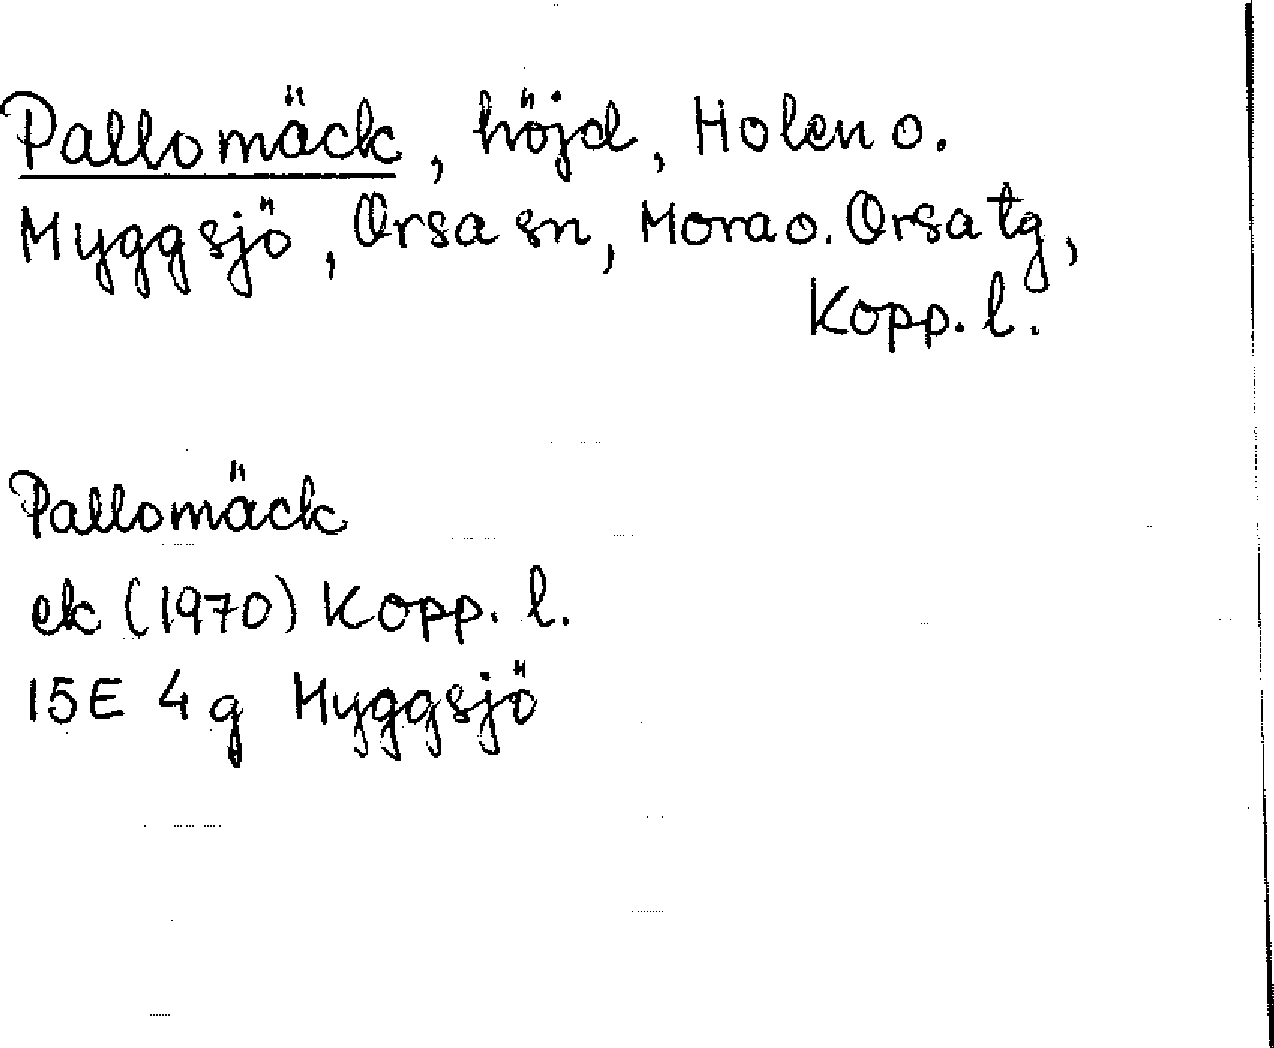 Pallomäck, höjd, Holen o.
Myggsjö, Orsa sn, Mora o. Orsa tg,
Kopp. l.
Pallomäck
ek (1970) Kopp. l.
15E 4g Myggsjö